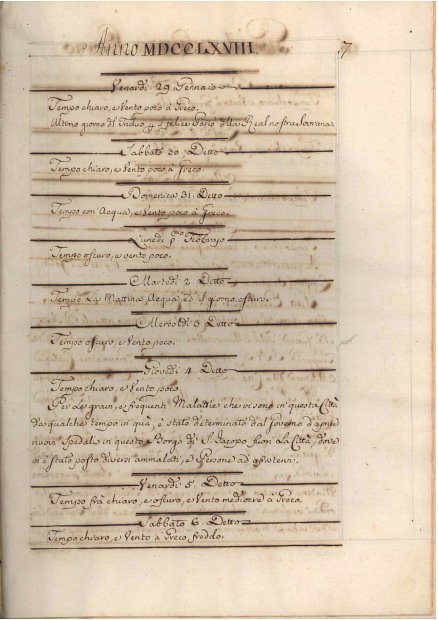 Anno MDCCLXVIII. 7
Venardi 29 Gennaio
Tempo chiaro, e Vento poco à Greco.
Ultimo giorno del Triduo, p il felice Parto della Real nostra Sovrana.
Sabbato 30 Detto
Tempo chiaro, e Vento poco à Greco.
Domenica 31. Detto
Tempo con Acqua, e Vento poco à Greco.
Lunedi pmo Febbrajo
Tempo oscuro, e vento poco.
Martedi 2. Detto
Tempo La Mattina Acqua, ed il giorno oscuro.
Mercoldi 3 Detto
Tempo oscuro, e Vento poco.
Giovedi 4. Detto
Tempo chiaro, e Vento poco.
Per le gravi, e frequenti Malattie che vi sono in questa Città
da qualche tempo in qua, è stato determinato dal Governo d'aprire
nuovo Spedale in questo Borgo di S. Jacopo, fuori La Città, dove
vi è stato posto diversi ammalati, e Persone ad assisterli.
Venardi 5. Detto
Tempo frà chiaro, e oscuro, e Vento mediocre à Greco.
Sabbato 6. Detto
Tempo chiaro, e Vento à Greco freddo.